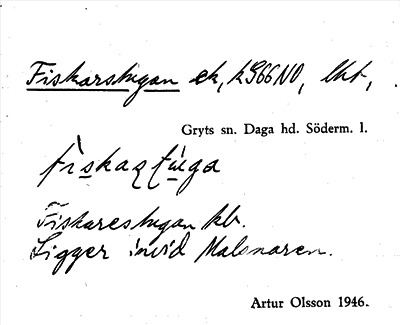 Fiskarstugan ek, k S66 NO, lht,
Gryts sn. Daga hd. Söderm. l.
Fiskarestugan kb.
Ligger invid Malmaren.
Artur Olsson 1946.